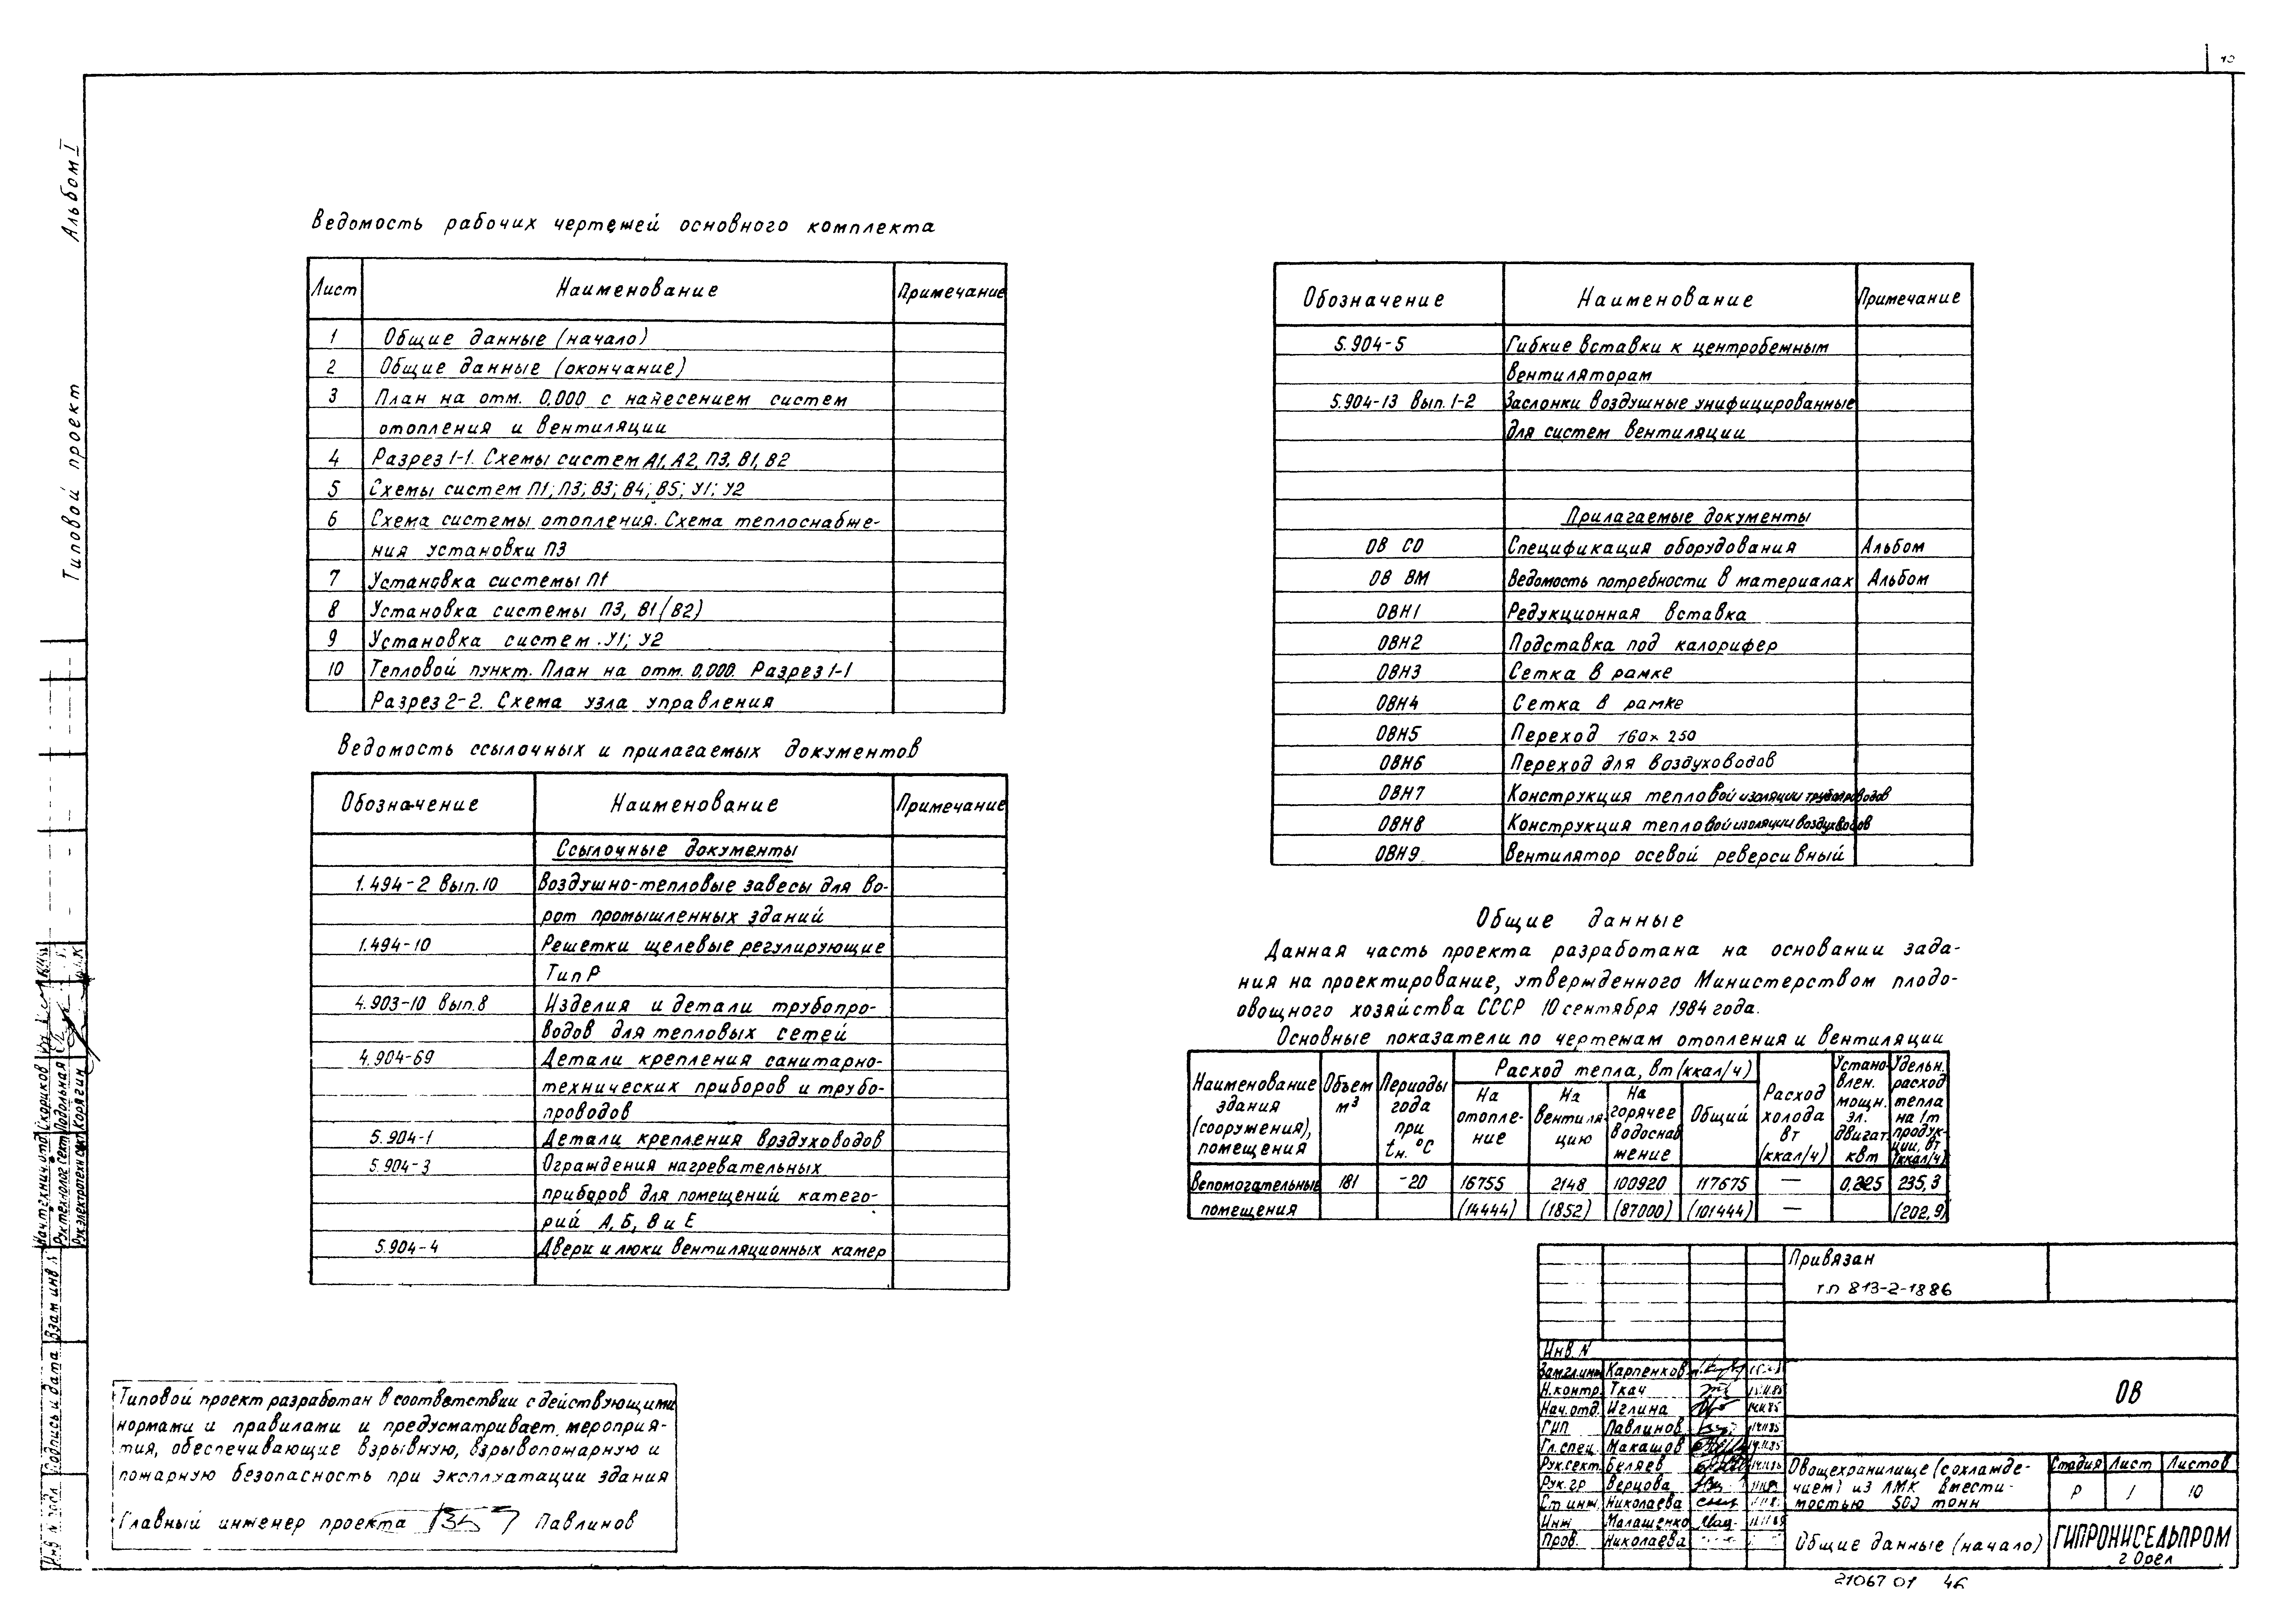 Альбом I
Типовой проект
Ведомость рабочих чертежей основного комплекта
Лист Наименование Примечание
1 Общие данные (начало)
2 Общие данные (окончание)
3 План на отм. 0,000 с нанесением систем
отопления и вентиляции
4 Разрез 1-1. Схемы систем А1, А2, П3, В1, В2
5 Схемы систем П1; П3; В3; В4; В5; У1; У2
6 Схема системы отопления. Схема теплоснабже-
ния установки П3
7 Установка системы П1
8 Установка системы П3, В1 (В2)
9 Установка систем У1; У2
10 Тепловой пункт. План на отм. 0,000. Разрез 1-1
Разрез 2-2. Схема узла управления
Ведомость ссылочных и прилагаемых документов
Обозначение Наименование Примечание
Ссылочные документы
1.494-2 вып.10 Воздушно-тепловые завесы для во-
рот промышленных зданий
1.494-10 Решетки щелевые регулирующие
Тип Р
4.903-10 вып.8 Изделия и детали трубопро-
водов для тепловых сетей
4.904-69 Детали крепления санитарно-
технических приборов и трубо-
проводов
5.904-1 Детали крепления воздуховодов
5.904-3 Ограждения нагревательных
приборов для помещений катего-
рий А, Б, В и Е
5.904-4 Двери и люки вентиляционных камер
Обозначение Наименование Примечание
5.904-5 Гибкие вставки к центробежным
вентиляторам
5.904-13 вып.1-2 Заслонки воздушные унифицированные
для систем вентиляции
Прилагаемые документы
ОВ СО Спецификация оборудования Альбом
ОВ ВМ Ведомость потребности в материалах Альбом
ОВН1 Редукционная вставка
ОВН2 Подставка под калорифер
ОВН3 Сетка в рамке
ОВН4 Сетка в рамке
ОВН5 Переход 160×250
ОВН6 Переход для воздуховодов
ОВН7 Конструкция тепловой изоляции трубопроводов
ОВН8 Конструкция тепловой изоляции воздуховодов
ОВН9 Вентилятор осевой реверсивный
Общие данные
Данная часть проекта разработана на основании зада-
ния на проектирование, утвержденного Министерством плодо-
овощного хозяйства СССР 10 сентября 1984 года.
Основные показатели по чертежам отопления и вентиляции
Наименование здания (сооружения), помещения
Объем м³
Периоды года при tн. °С
Расход тепла, вт (ккал/ч)
На отопле-ние
На вентиля-цию
На горячее водоснаб жение
Общий
Расход холода вт (ккал/ч)
Устано-влен. мощн. эл. двигат. квт
Удельн. расход тепла на 1т продук-ции, вт (ккал/ч)
Вспомогательные 181 -20 16755 2148 100920 117675 — 0,225 235,3
помещения (14444) (1852) (87000) (101444) — (202,9)
Типовой проект разработан в соответствии с действующими
нормами и правилами и предусматривает мероприя-
тия, обеспечивающие взрывную, взрывопожарную и
пожарную безопасность при эксплуатации здания
Главный инженер проекта Павлинов
Нач.технич.отд Скориков
Рук.технолог.сект Подольная
Рук.электротехн.сект Корягин
Взам инв №
Подпись и дата
Инв № подл
Привязан
т.п 813-2-1886
Инв. N
Зам.гл.инж Карпенков
Н.контр. Ткач
Нач.отд. Иглина
ГИП Павлинов
Гл.спец. Макашов
Рук.сект. Беляев
Рук.гр Верцова
Ст.инж. Николаева
Инж Малашенко
Пров. Николаева
ОВ
Овощехранилище (с охлажде-
нием) из ЛМК вмести-
мостью 500 тонн
Стадия Лист Листов
Р 1 10
Общие данные (начало)
ГИПРОНИСЕЛЬПРОМ
г Орел
21067 01 46